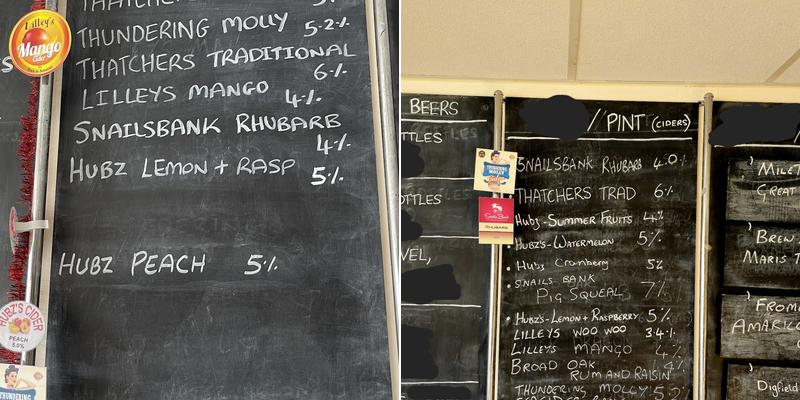 THATCHERS
THUNDERING MOLLY 5.2%
THATCHERS TRADITIONAL
6%
LILLEYS MANGO
4%
SNAILSBANK RHUBARB
4%
HUBZ LEMON + RASP
5%
HUBZ PEACH 5%
Lilley's
Mango
Cider
HUBZ'S CIDER
PEACH
5.0%
THUNDERING
BEERS
TTLES
OTTLES
VEL,
/ PINT (CIDERS)
SNAILSBANK RHUBARB 4.0%
THATCHERS TRAD 6%
Hubz - SUMMER FRUITS 4%
HUBZ'S - WATERMELON 5%
Hubz Cranberry 5%
SNAILS BANK
PIG SQUEAL 7%
HUBZ'S - LEMON + RASPBERRY 5%
LILLEYS WOO WOO 3.4%
LILLEYS MANGO 4%
BROAD OAK 4%
RUM AND RAISIN
THUNDERING MOLLY 5.2
RHUBARB
MILET
GREAT
BREW
MARIS T
FROM
AMARILLO
Digfield